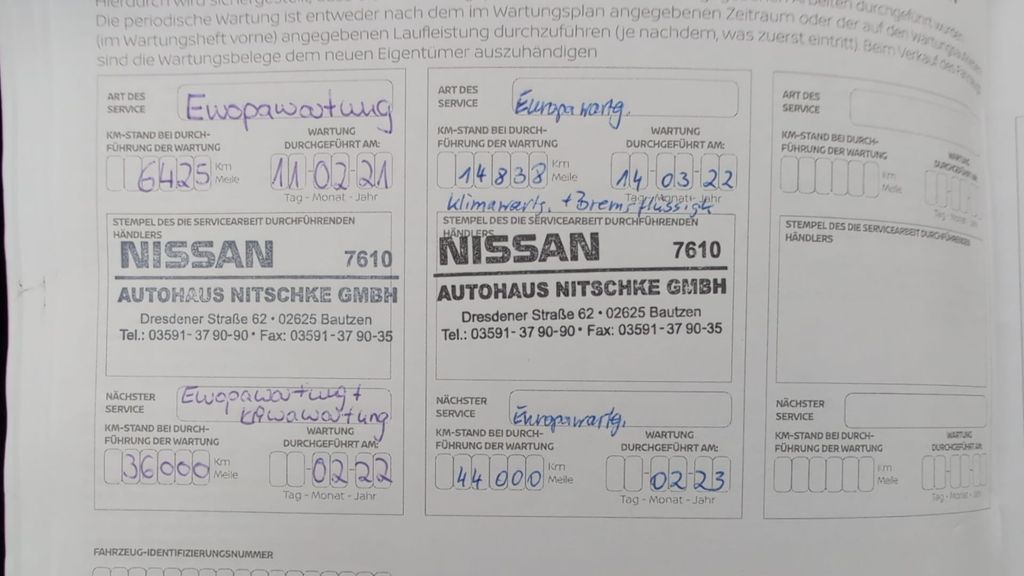 Die periodische Wartung ist entweder nach dem im Wartungsplan angegebenen Zeitraum oder der auf den
(im Wartungsheft vorne) angegebenen Laufleistung durchzuführen (je nachdem, was zuerst eintritt). Beim Verkauf des
sind die Wartungsbelege dem neuen Eigentümer auszuhändigen
ART DES
SERVICE
Europawartung
KM-STAND BEI DURCH-
FÜHRUNG DER WARTUNG
WARTUNG
DURCHGEFÜHRT AM:
6425 Km
Meile
11-02-21
Tag - Monat - Jahr
STEMPEL DES DIE SERVICEARBEIT DURCHFÜHRENDEN
HÄNDLERS
NISSAN 7610
AUTOHAUS NITSCHKE GMBH
Dresdener Straße 62 • 02625 Bautzen
Tel.: 03591- 37 90-90 • Fax: 03591- 37 90-35
NÄCHSTER
SERVICE
Europawartung +
Klimawartung
KM-STAND BEI DURCH-
FÜHRUNG DER WARTUNG
WARTUNG
DURCHGEFÜHRT AM:
36000 Km
Meile
02-22
Tag - Monat - Jahr
ART DES
SERVICE
Europawartg.
KM-STAND BEI DURCH-
FÜHRUNG DER WARTUNG
WARTUNG
DURCHGEFÜHRT AM:
14838 Km
Meile
14-03-22
Tag - Monat - Jahr
Klimawartg. + Bremsflüssigk
STEMPEL DES DIE SERVICEARBEIT DURCHFÜHRENDEN
HÄNDLERS
NISSAN 7610
AUTOHAUS NITSCHKE GMBH
Dresdener Straße 62 • 02625 Bautzen
Tel.: 03591- 37 90-90 • Fax: 03591- 37 90-35
NÄCHSTER
SERVICE
Europawartg.
KM-STAND BEI DURCH-
FÜHRUNG DER WARTUNG
WARTUNG
DURCHGEFÜHRT AM:
44000 Km
Meile
02-23
Tag - Monat - Jahr
ART DES
SERVICE
KM-STAND BEI DURCH-
FÜHRUNG DER WARTUNG
WARTUNG
DURCHGEFÜHRT AM:
Km
Meile
Tag - Monat - Jahr
STEMPEL DES DIE SERVICEARBEIT DURCHFÜHRENDEN
HÄNDLERS
NÄCHSTER
SERVICE
KM-STAND BEI DURCH-
FÜHRUNG DER WARTUNG
WARTUNG
DURCHGEFÜHRT AM:
Km
Meile
Tag - Monat - Jahr
FAHRZEUG-IDENTIFIZIERUNGSNUMMER